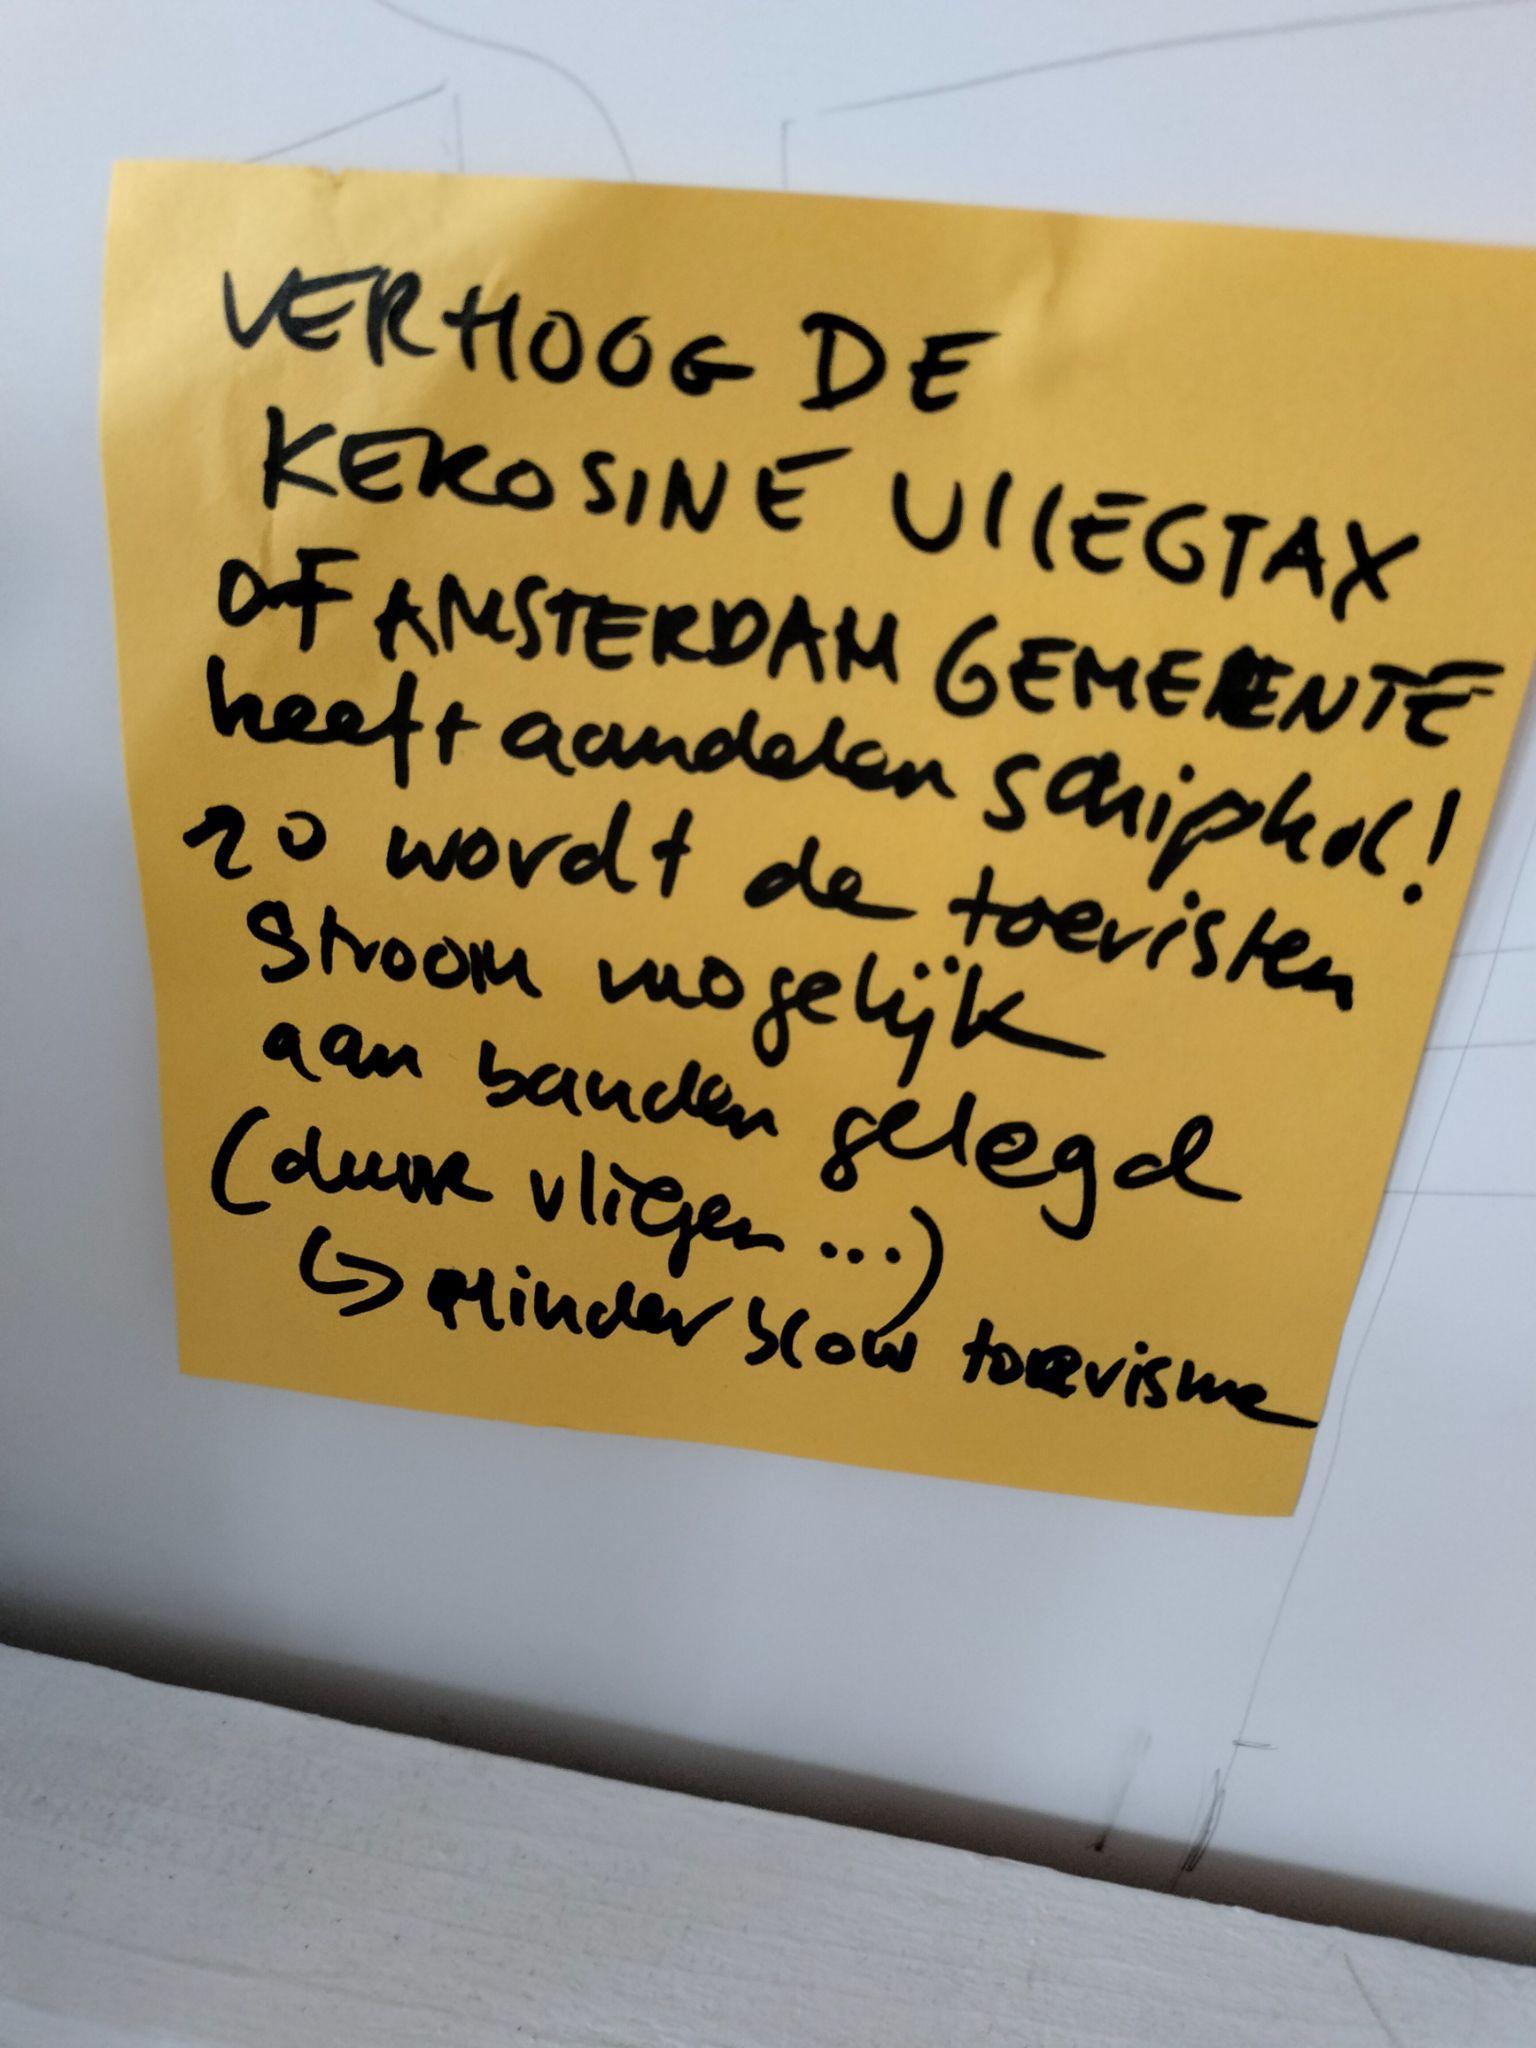 VERHOOG DE
KEROSINE VLIEGTAX
OF AMSTERDAM GEMEENTE
heeft aandelen schiphol!
zo wordt de toeristen
stroom mogelijk
aan banden gelegd
(duur vliegen ...)
↳ Minder blow toerisme